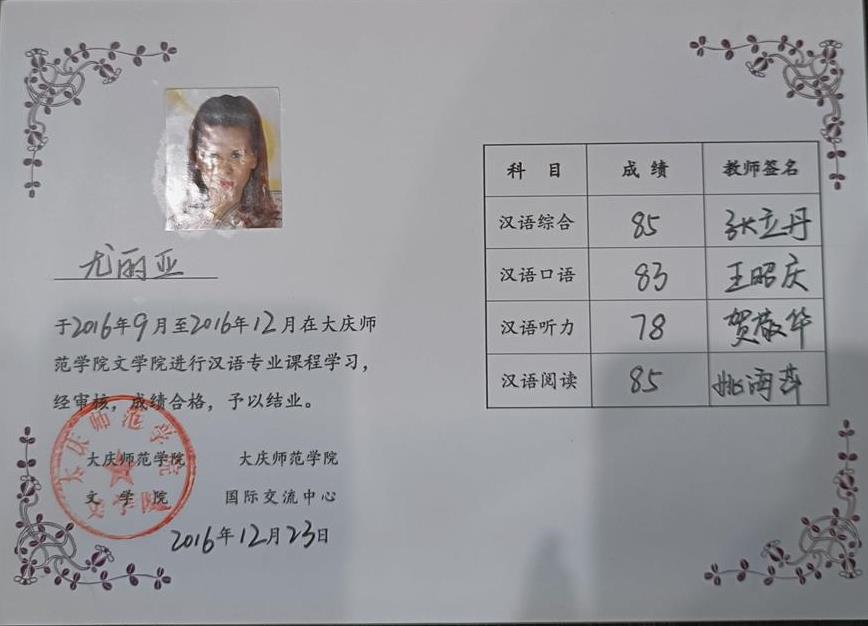 尤丽亚
于2016年9月至2016年12月在大庆师
范学院文学院进行汉语专业课程学习，
经审核，成绩合格，予以结业。
大庆师范学院 大庆师范学院
文 学 院 国际交流中心
2016年12月23日
大庆师范学院
文学院
科 目 成 绩 教师签名
汉语综合 85 张立丹
汉语口语 83 王昭庆
汉语听力 78 贺敬华
汉语阅读 85 姚海萍